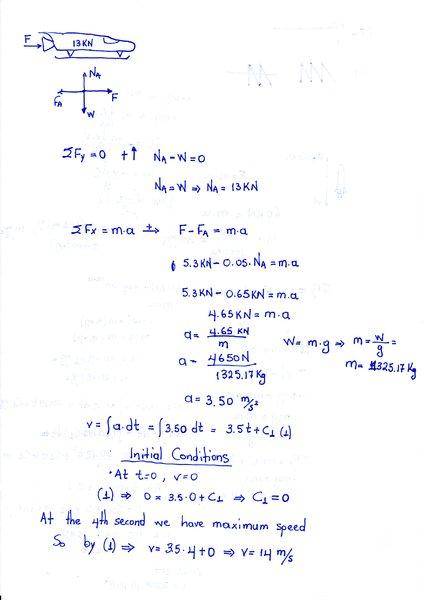 F 13KN
NA
FA F
W
ΣFy = 0 +↑ NA - W = 0
NA = W ⇒ NA = 13KN
ΣFx = m.a +→ F - FA = m.a
5.3KN - 0.05.NA = m.a
5.3KN - 0.65KN = m.a
4.65KN = m.a
a = 4.65 KN / m W = m.g ⇒ m = W/g =
a = 4650N / 1325.17Kg m = 1325.17Kg
a = 3.50 m/s²
v = ∫a.dt = ∫3.50 dt = 3.5t + C1 (1)
Initial Conditions
·At t=0, v=0
(1) ⇒ 0 = 3.5.0 + C1 ⇒ C1 = 0
At the 4th second we have maximum speed
So by (1) ⇒ v = 3.5.4 + 0 ⇒ v = 14 m/s